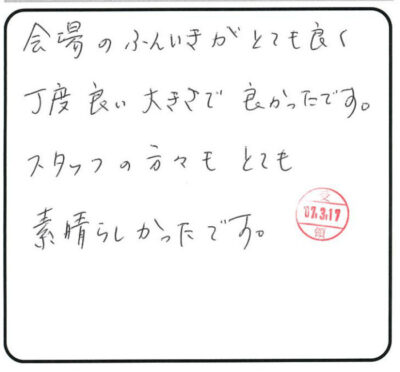 会場のふんいきがとても良く
丁度良い大きさで良かったです。
スタッフの方々もとても
素晴らしかったです。
07.3.17
領